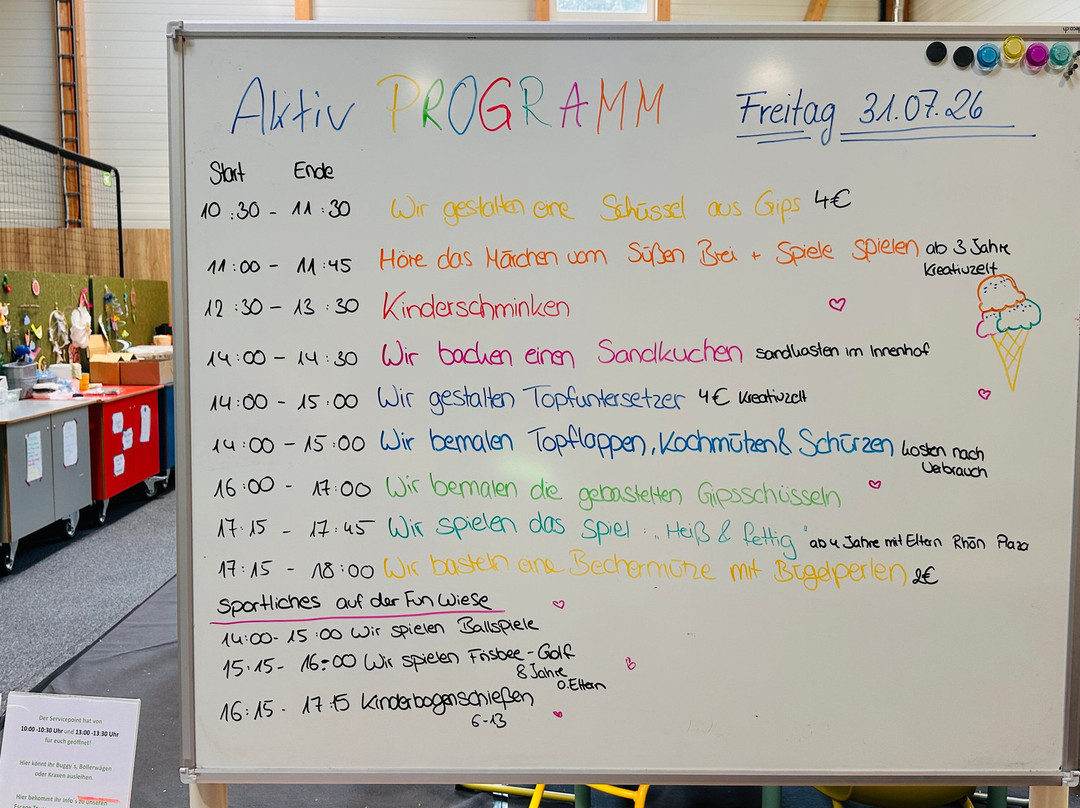 Aktiv PROGRAMM Freitag 31.07.26
Start Ende
10:30 - 11:30 Wir gestalten eine Schüssel aus Gips 4€
11:00 - 11:45 Höre das Märchen vom Süßen Brei + Spiele spielen ab 3 Jahre
Kreativzelt
12:30 - 13:30 Kinderschminken
14:00 - 14:30 Wir backen einen Sandkuchen sandkasten im Innenhof
14:00 - 15:00 Wir gestalten Topfuntersetzer 4€ Kreativzelt
14:00 - 15:00 Wir bemalen Topflappen, Kochmützen & Schürzen kosten nach
Verbrauch
16:00 - 17:00 Wir bemalen die gebastelten Gipsschüsseln
17:15 - 17:45 Wir spielen das Spiel: „Heiß & fettig" ab 4 Jahre mit Eltern Rhön Plaza
17:15 - 18:00 Wir basteln eine Bechermütze mit Bügelperlen 2€
Sportliches auf der Fun Wiese
14:00 - 15:00 Wir spielen Ballspiele
15:15 - 16:00 Wir spielen Frisbee-Golf
8 Jahre
o. Eltern
16:15 - 17:15 Kinderbogenschießen
6-13
Der Servicepoint hat von
10:00 -10:30 Uhr und 13:00 -13:30 Uhr
für euch geöffnet!
Hier könnt ihr Buggy´s, Bollerwägen
oder Kraxen ausleihen
Hier bekommt ihr Info´s zu unseren